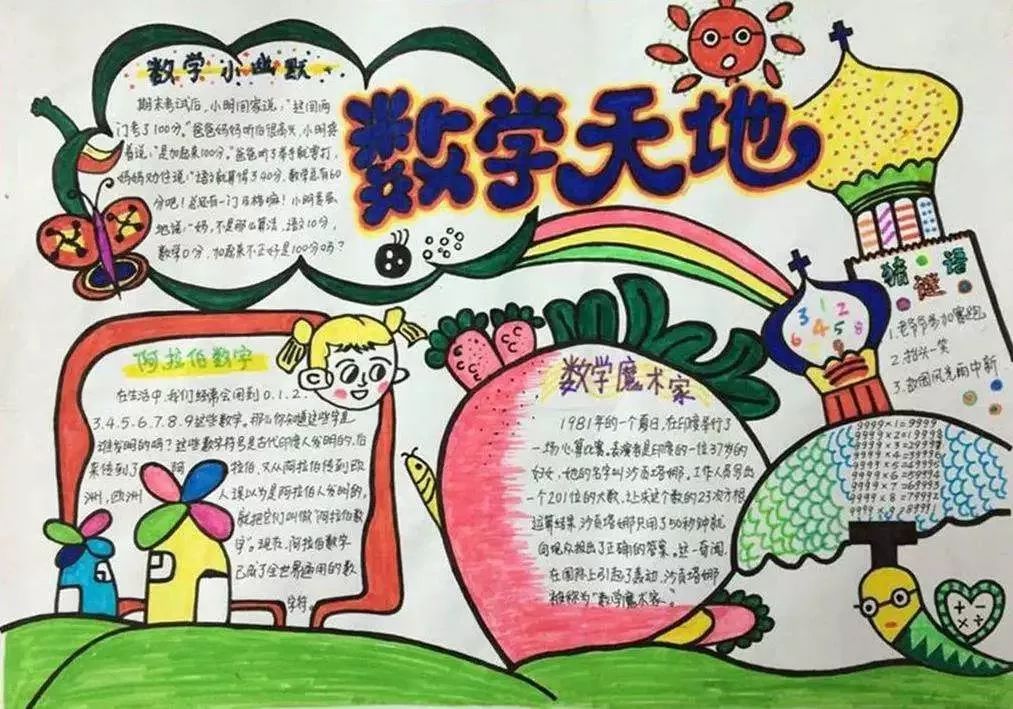 数学天地
数学小幽默
期末考试后,小明回家说:"这回两
门考了100分,"爸爸妈妈听后很高兴,小明接
着说:"是加起来100分,"爸爸听了举手就要打,
妈妈劝住说:"语文就算得了40分,数学总有60
分吧!总还有一门及格嘛!小明委屈
地说:"妈,不是那么算法,语文10分,
数学0分,加起来不正好是100分吗?
阿拉伯数字
在生活中,我们经常会用到0.1.2.
3.4.5.6.7.8.9这些数字。那么你知道这些字是
谁发明的吗?这些数字符号是古代印度人发明的,后
来传到了阿拉伯,又从阿拉伯传到欧
洲,欧洲人误以为是阿拉伯人发明的,
就把它们叫做"阿拉伯数
字"。现在,阿拉伯数字
已成了全世界通用的数
字符。
数学魔术家
1981年的一个夏日,在印度举行了
一场心算比赛,表演者是印度的一位37岁的
妇女,她的名字叫沙贡塔娜,工作人员写出
一个201位的大数,让求这个数的23次方根
运算结果,沙贡塔娜只用了50秒钟就
向观众报出了正确的答案。这一奇闻
在国际上引起了轰动,沙贡塔娜
被称为"数学魔术家。"
3 1 2
6 4 5 8
猜谜语
1.老爷爷参加赛跑
2.抬头一笑
3.故国风光雨中新
9999×1=9999
9999×2=19998
9999×7=69993
9999×8=79992
+ -
× ÷